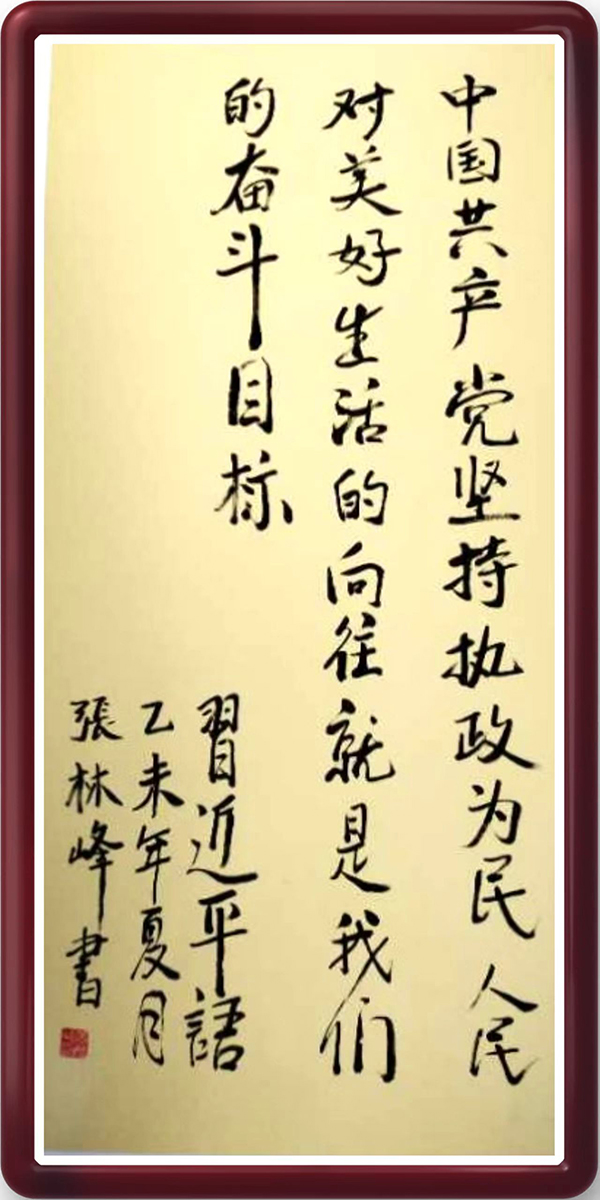 中国共产党坚持执政为民人民
对美好生活的向往就是我们
的奋斗目标
習近平語
乙未年夏月
張林峰書